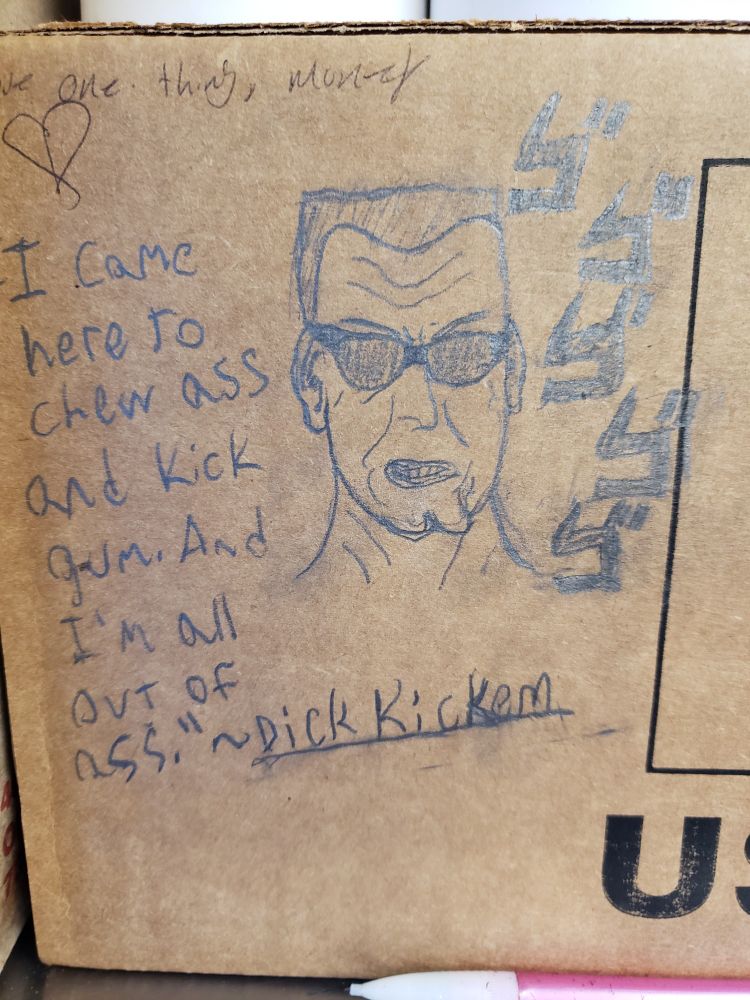 one thing, money
I Came
here to
chew ass
and kick
gum. And
I'm all
out of
ass." ~Dick Kickem
ゴゴゴゴゴ